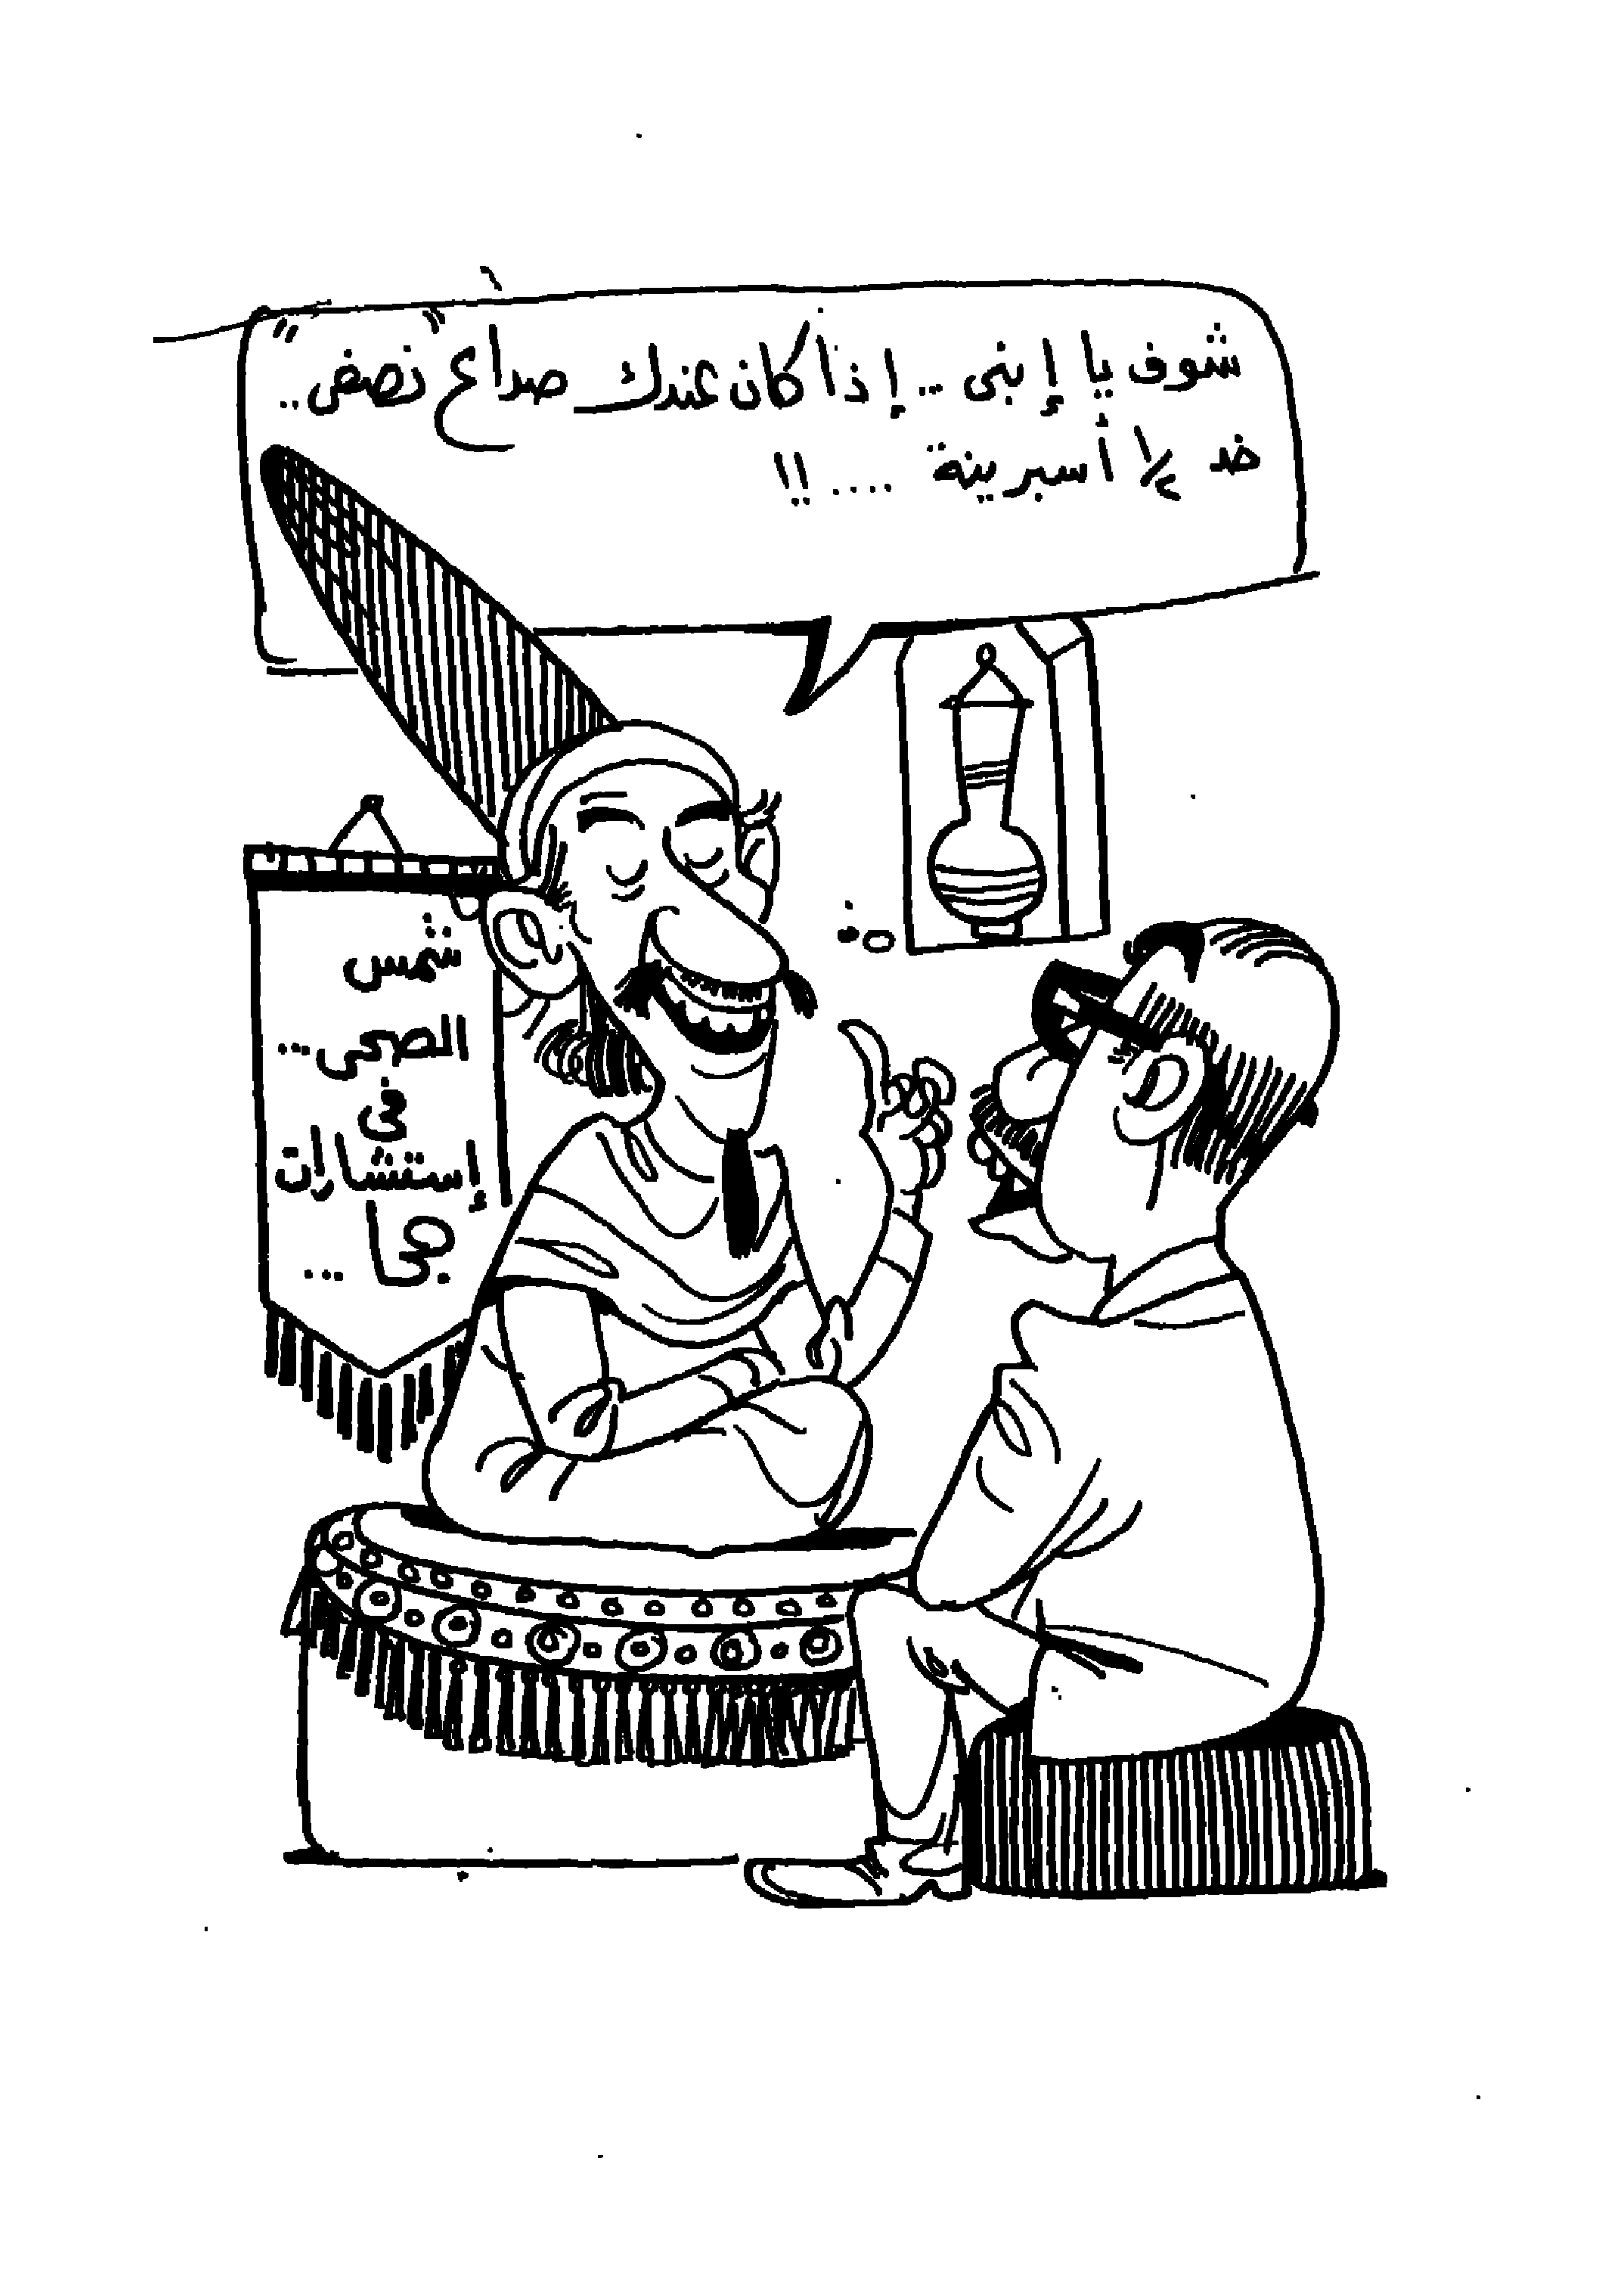 شوف يا إبنى .. إذا كان عندك صداع "نصفى" ..
خد ١/٢ أسبرينة .... !!
شمس
الضحى ...
فى
إستشارات
جحا ...